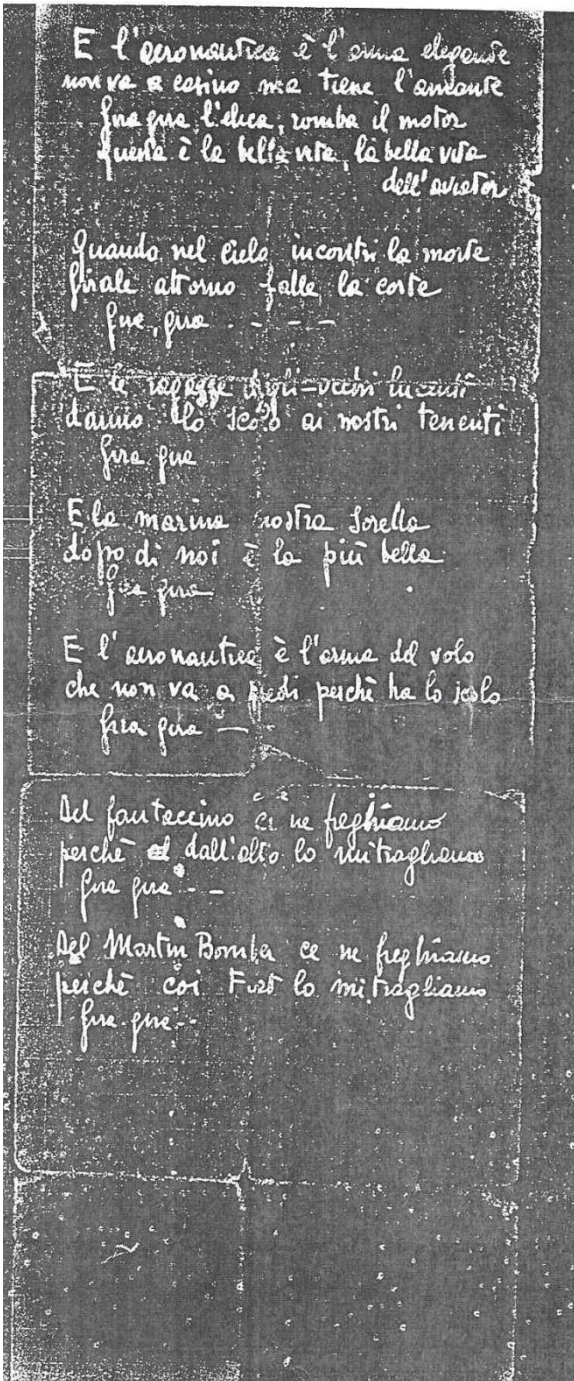 E l'aeronautica è l'arma elegante
non va a casino ma tiene l'amante
gira gira l'elica, romba il motor
questa è la bella vita, la bella vita
dell'aviator
Quando nel cielo incontri la morte
girale attorno falle la corte
gira, gira . - - -
E le ragazze dagli occhi lucenti
danno lo scolo ai nostri tenenti
gira gira
E la marina nostra sorella
dopo di noi è la più bella
gira gira
E l'aeronautica è l'arma del volo
che non va a piedi perchè ha lo scolo
gira gira —
Del fantaccino ce ne freghiamo
perchè dall'alto lo mitragliamo
gira gira - -
Del Martin Bomber ce ne freghiamo
perchè coi Fiat lo mitragliamo
gira gira - -